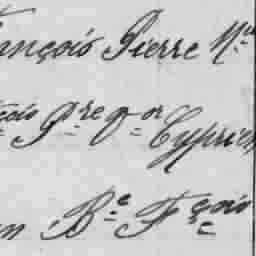 ançois Pierre M.
çois G.re J.or Cyprien
n B.e F.çois